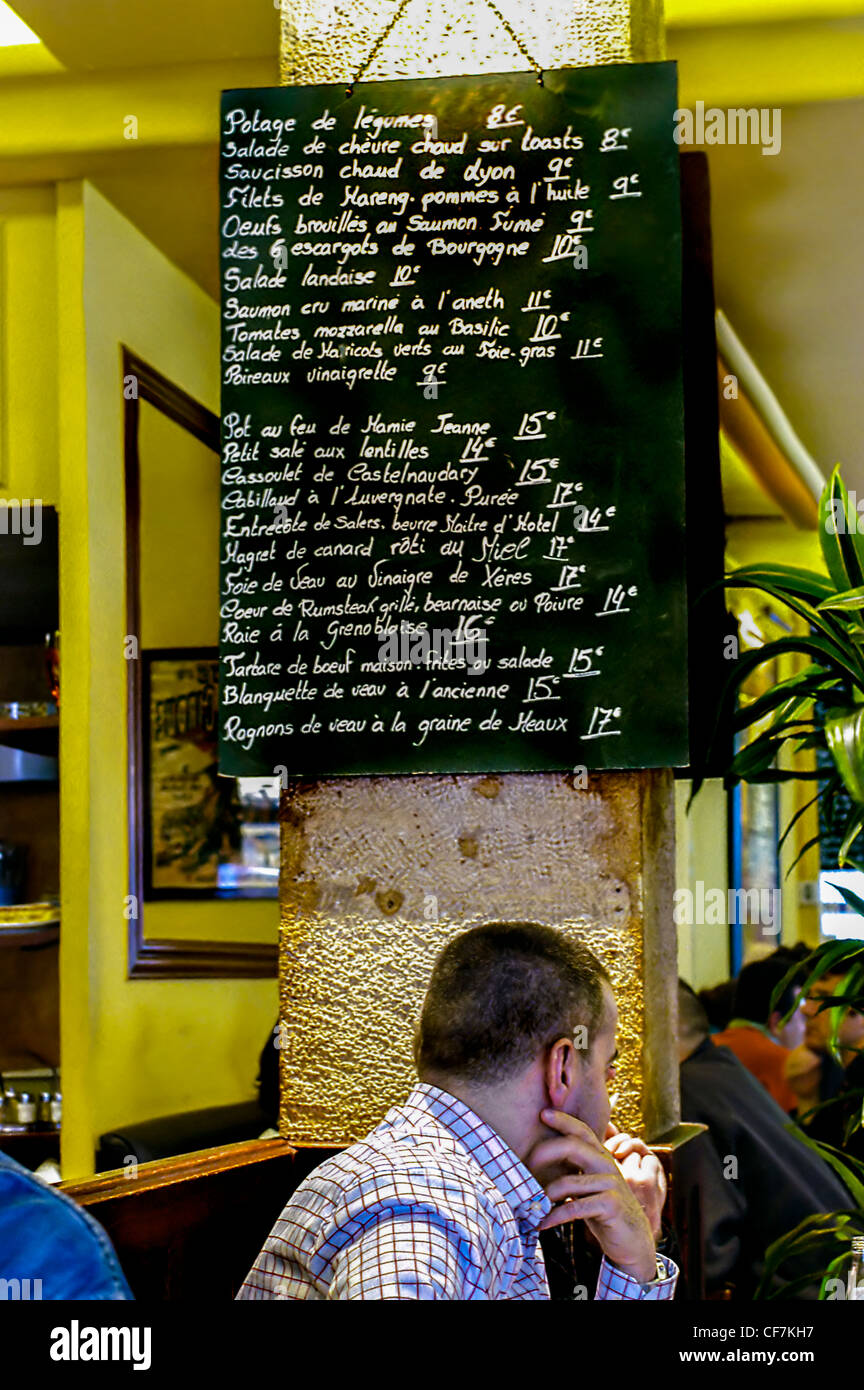 Potage de légumes 8€
Salade de chèvre chaud sur toasts 8€
Saucisson chaud de Lyon 9€
Filets de Hareng. pommes à l'huile 9€
Oeufs brouillés au Saumon Fumé 9€
des 6 escargots de Bourgogne 10€
Salade landaise 10€
Saumon cru mariné à l'aneth 11€
Tomates mozzarella au Basilic 10€
Salade de Haricots verts au Foie-gras 11€
Poireaux vinaigrette 9€
Pot au feu de Mamie Jeanne 15€
Petit salé aux lentilles 14€
Cassoulet de Castelnaudary 15€
Cabillaud à l'Auvergnate. Purée 17€
Entrecôte de Salers. beurre Maître d'Hotel 14€
Magret de canard rôti au Miel 17€
Foie de Veau au Vinaigre de Xéres 17€
Coeur de Rumsteak grillé, bearnaise ou Poivre 14€
Raie à la Grenobloise 16€
Tartare de boeuf maison. frites ou salade 15€
Blanquette de veau à l'ancienne 15€
Rognons de veau à la graine de Meaux 17€
alamy
Image ID: CF7KH7
www.alamy.com